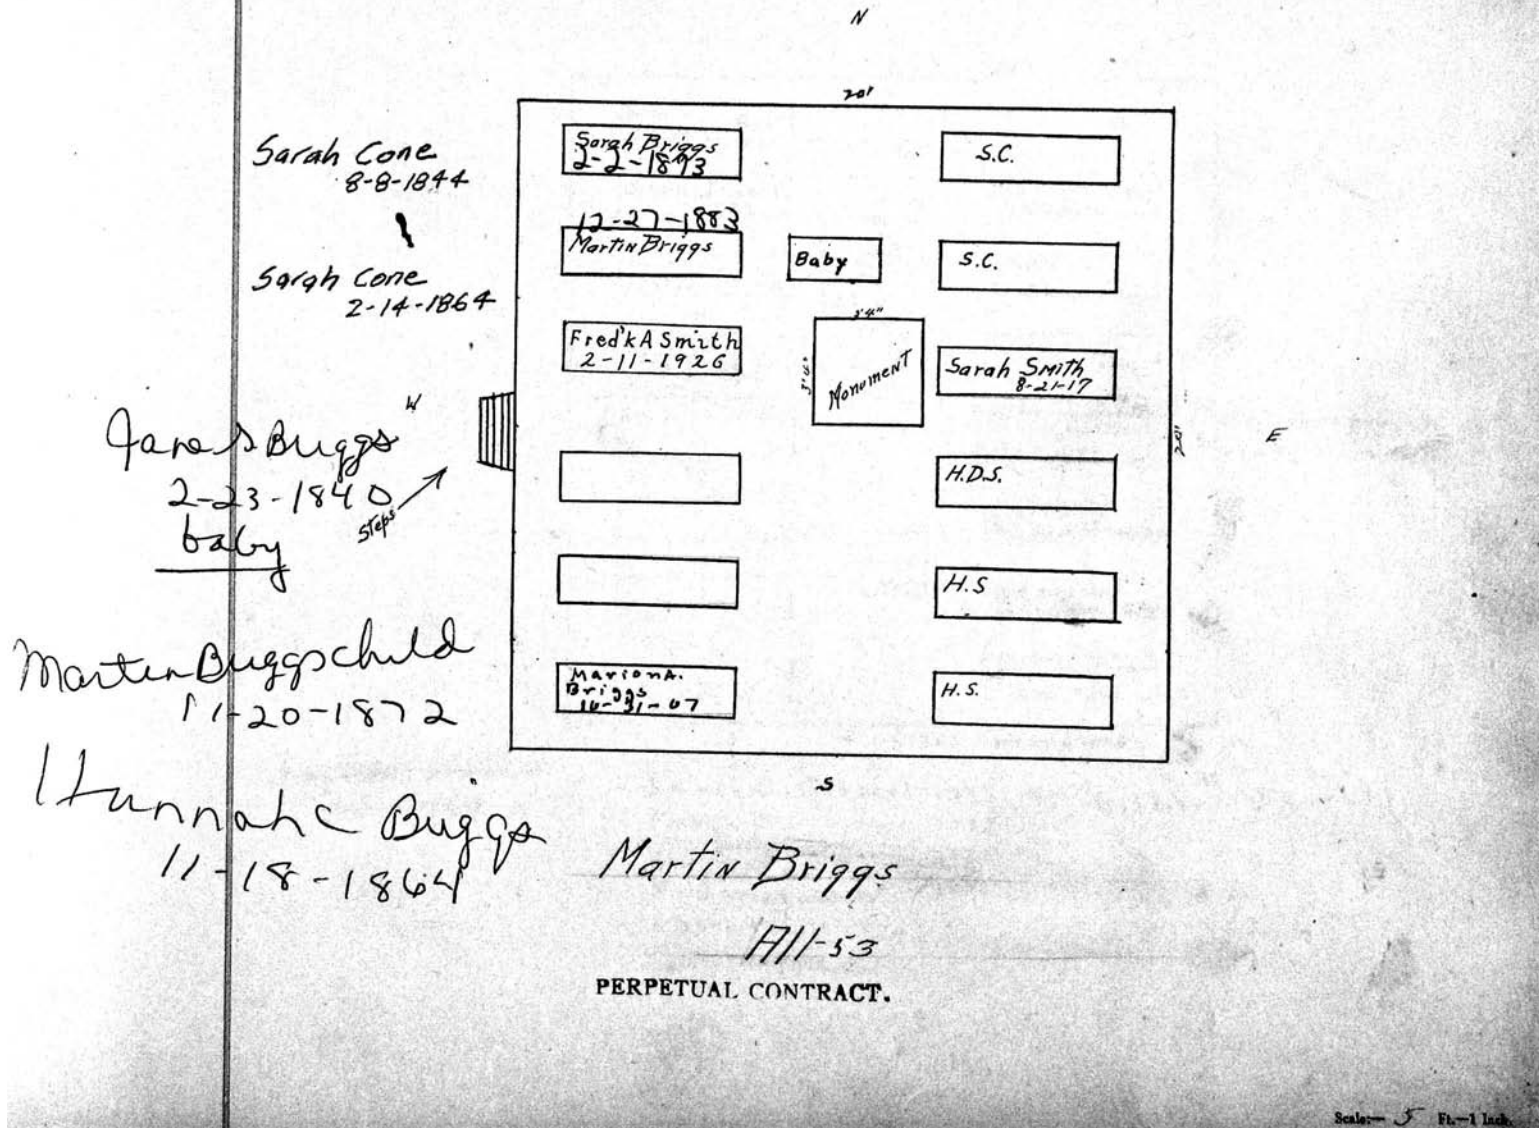 N
20'
Sarah Cone
8-8-1844
Sarah Cone
2-14-1864
W
Jane S Briggs
2-23-1840
baby
steps
Martin Briggs child
11-20-1872
Hannah C Briggs
11-18-1864
Sarah Briggs
2-2-1873
12-27-1883
Martin Briggs
Fred'k A Smith
2-11-1926
Marion A.
Briggs
10-31-07
Baby
3'4"
3'4"
Monument
S.C.
S.C.
Sarah Smith
8-21-17
H.D.S.
H.S
H.S.
20'
E
S
Martin Briggs
A11-53
PERPETUAL CONTRACT.
Scale:— 5 Ft.—1 Inch.